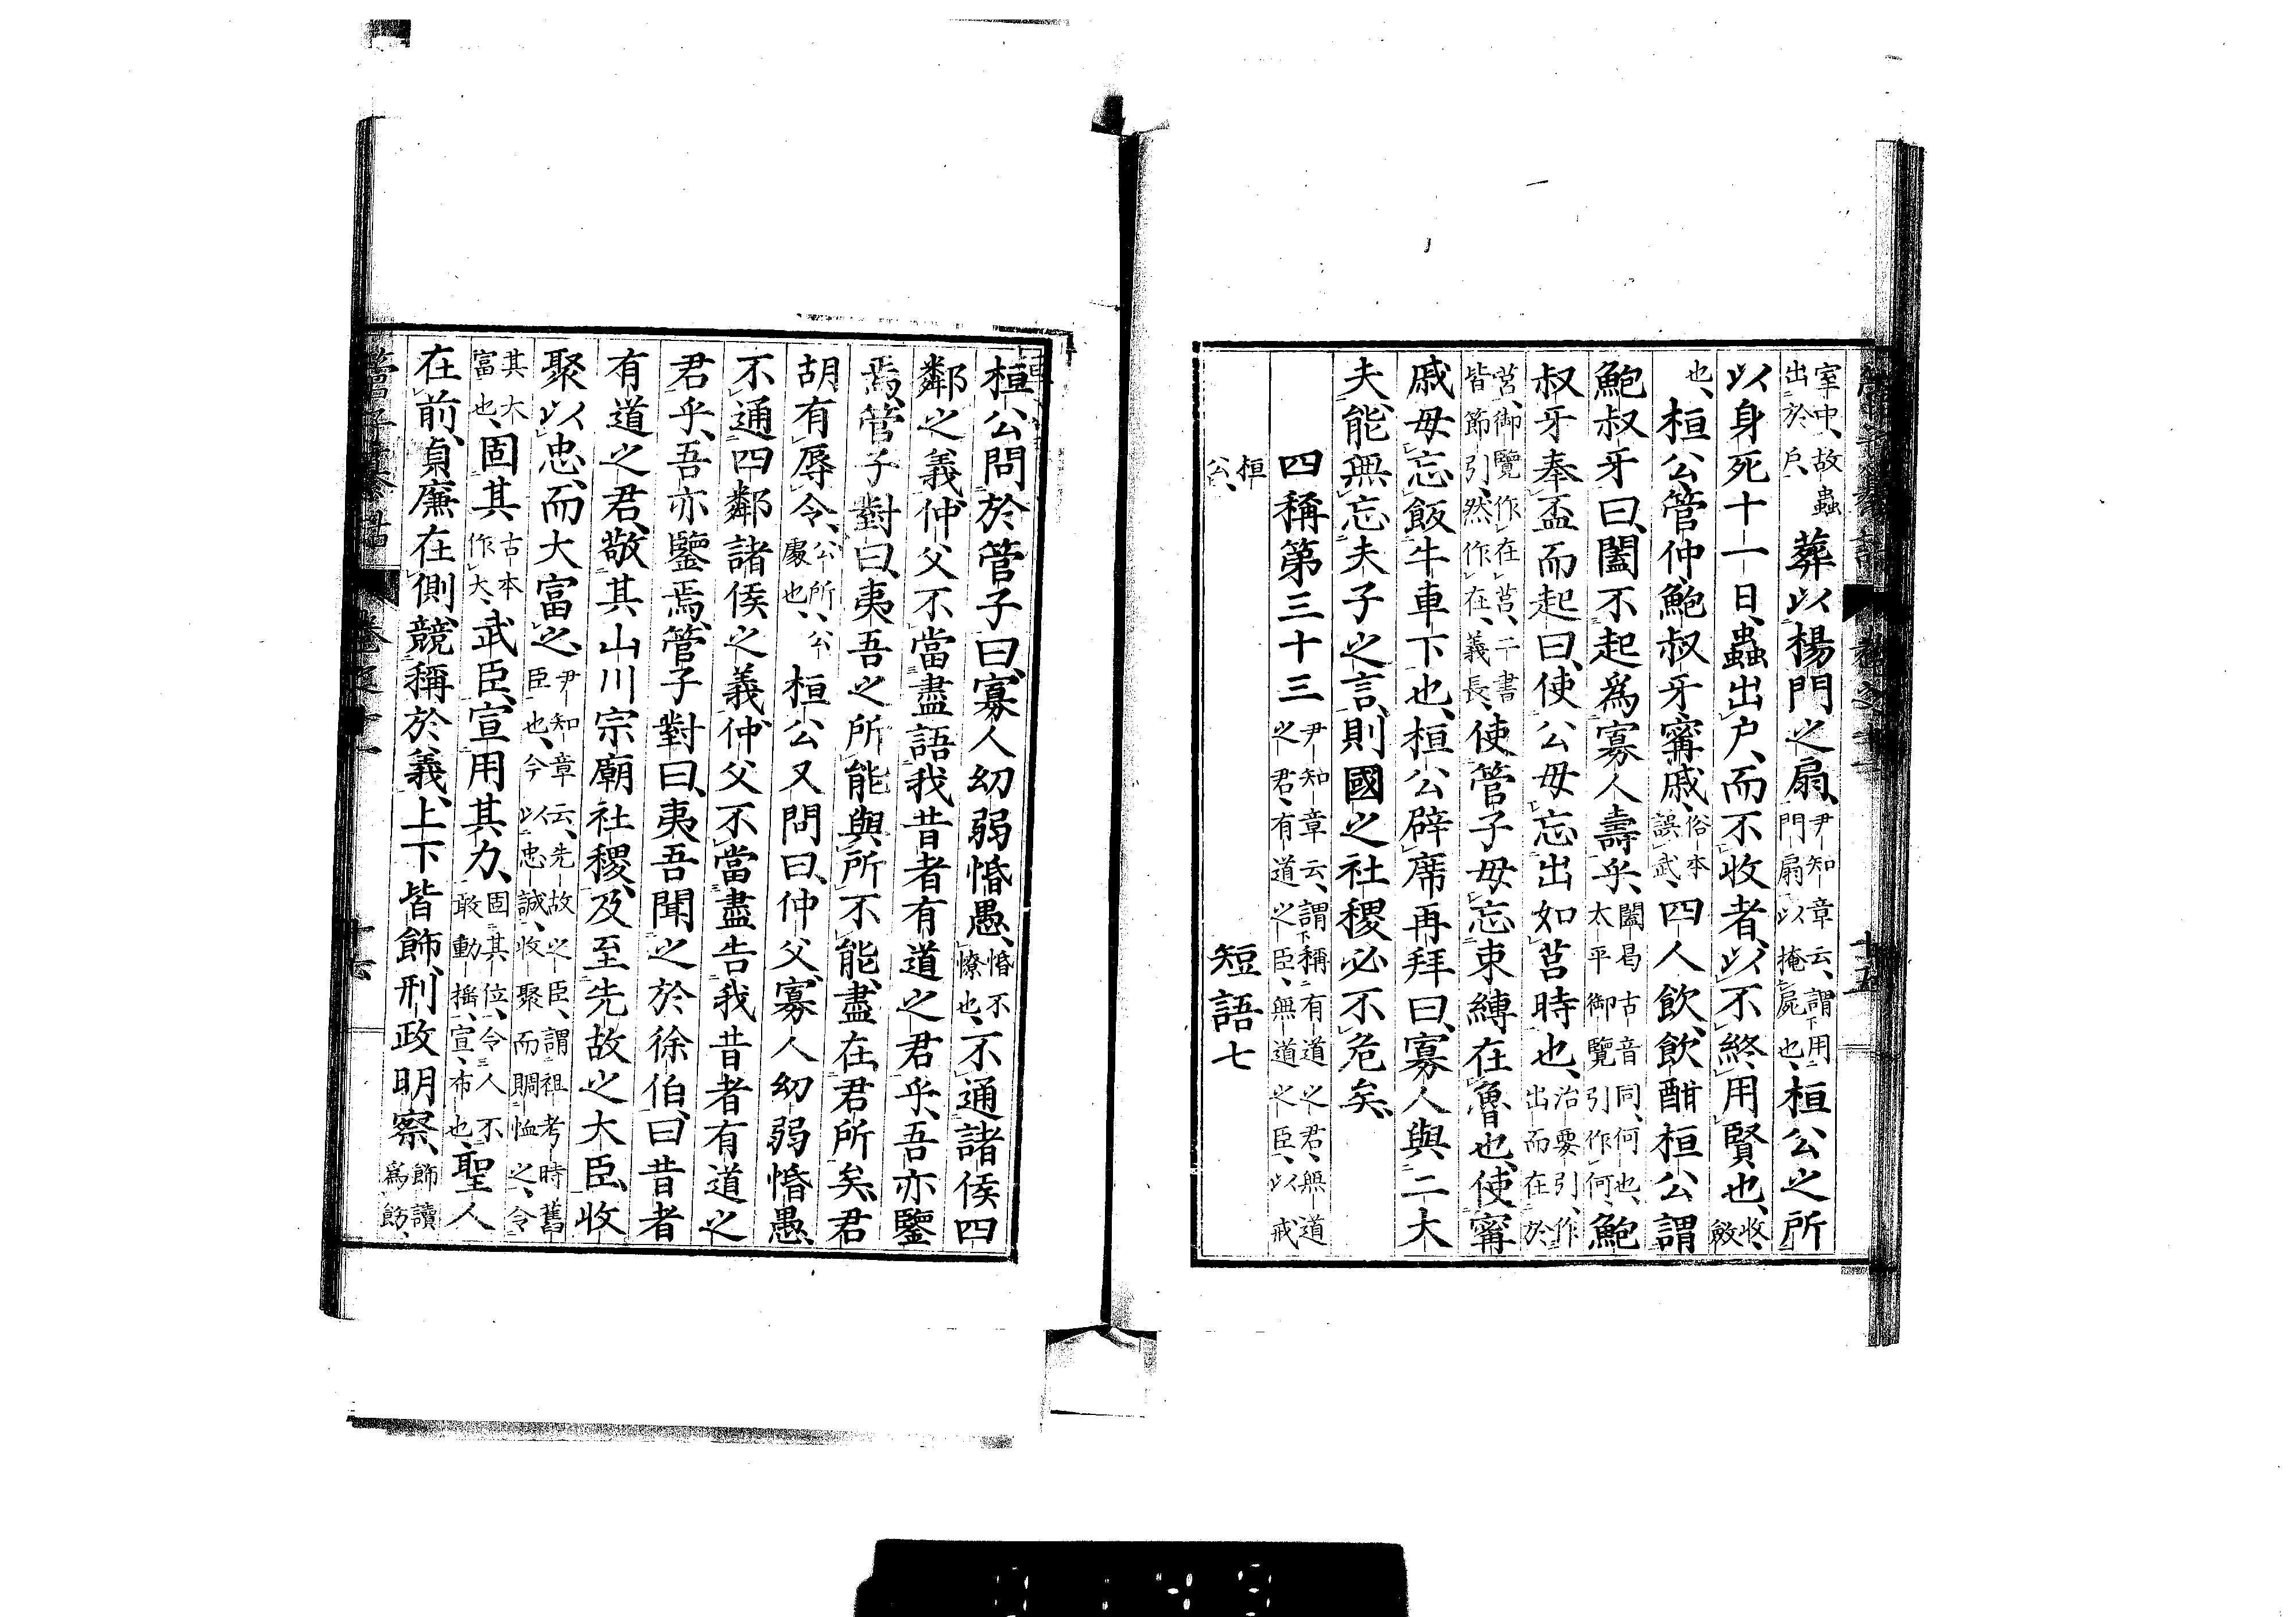 室中、故蟲出於戶、葬以楊門之扇、尹知章云、謂用門扇以掩屍也、桓公之所
以身死十一日、蟲出戶、而不收者、以不終用賢也、收、斂
也、桓公、管仲、鮑叔牙、甯戚、俗本誤武、四人飲、飲酣、桓公謂
鮑叔牙曰、闔不起爲寡人壽乎、闔曷古音同、何也、太平御覽引作何、鮑
叔牙奉盃而起曰、使公毋忘出如莒時也、治要引、作出而在於
莒、御覽作在莒、二書皆節引、然作在、義長、使管子毋忘束縛在魯也、使甯
戚毋忘飯牛車下也、桓公辟席再拜曰、寡人與二大
夫、能無忘夫子之言、則國之社稷必不危矣、
四稱第三十三 尹知章云、謂稱有道之君、無道之君、有道之臣、無道之臣、以戒
桓公、 短語七
桓公問於管子曰、寡人幼弱惛愚、惛不憭也、不通諸侯四
鄰之義、仲父不當盡語我昔者有道之君乎、吾亦鑒
焉、管子對曰、夷吾之所能與所不能、盡在君所矣、君
胡有辱令、公所、公處也、桓公又問曰、仲父、寡人幼弱惛愚、
不通四鄰諸侯之義、仲父不當盡告我昔者有道之
君乎、吾亦鑒焉、管子對曰、夷吾聞之於徐伯、曰、昔者
有道之君、敬其山川宗廟社稷、及至先故之大臣、收
聚以忠、而大富之、尹知章云、先故之臣、謂祖考時舊臣也、今以忠誠、收聚而賙恤之、令
其大富也、固其、古本作大、武臣、宣用其力、固其位、令人不敢動搖、宣、布也、聖人
在前、貞廉在側、競稱於義、上下皆飾、刑政明察、飾讀爲飭、